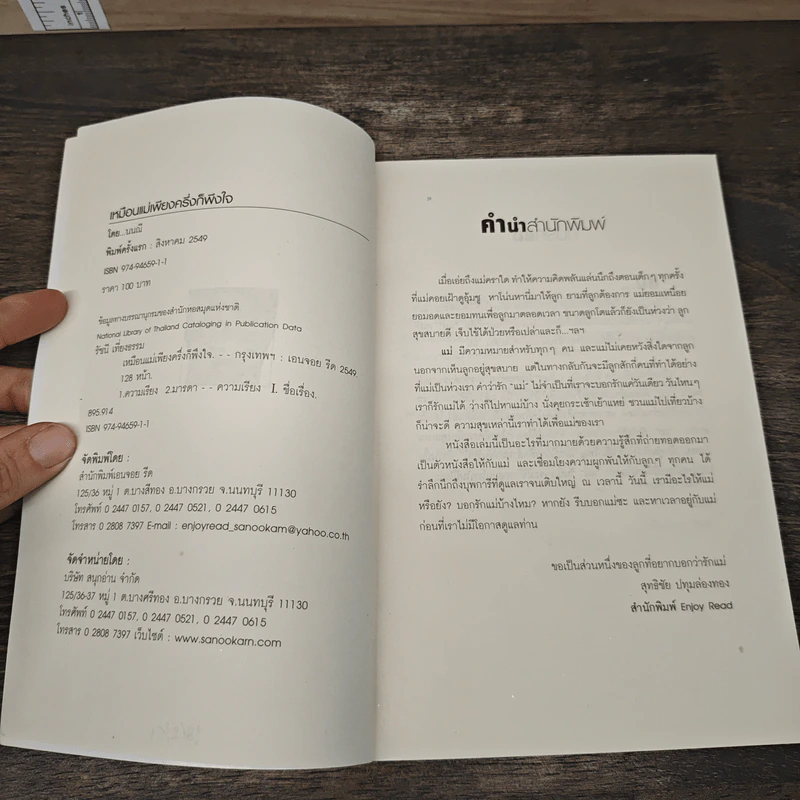 inches
เหมือนแม่เพียงครึ่งก็พึงใจ
โดย...นนณี
พิมพ์ครั้งแรก : สิงหาคม 2549
ISBN 974-94659-1-1
ราคา 100 บาท
ข้อมูลทางบรรณานุกรมของสำนักหอสมุดแห่งชาติ
National Library of Thailand Cataloging in Publication Data
รัชนี เที่ยงธรรม
เหมือนแม่เพียงครึ่งก็พึงใจ. - - กรุงเทพฯ : เอนจอย รีด 2549.
128 หน้า.
1.ความเรียง 2.มารดา - - ความเรียง I. ชื่อเรื่อง.
895.914
ISBN 974-94659-1-1
จัดพิมพ์โดย :
สำนักพิมพ์เอนจอย รีด
125/36 หมู่ 1 ต.บางสีทอง อ.บางกรวย จ.นนทบุรี 11130
โทรศัพท์ 0 2447 0157, 0 2447 0521, 0 2447 0615
โทรสาร 0 2808 7397 E-mail : enjoyread_sanookarn@yahoo.co.th
จัดจำหน่ายโดย :
บริษัท สนุกอ่าน จำกัด
125/36-37 หมู่ 1 ต.บางศรีทอง อ.บางกรวย จ.นนทบุรี 11130
โทรศัพท์ 0 2447 0157, 0 2447 0521, 0 2447 0615
โทรสาร 0 2808 7397 เว็บไซต์ : www.sanookarn.com
คำนำสำนักพิมพ์
เมื่อเอ่ยถึงแม่คราใด ทำให้ความคิดพลันแล่นนึกถึงตอนเด็กๆ ทุกครั้ง
ที่แม่คอยเฝ้าดูอุ้มชู หาโน่นหานี่มาให้ลูก ยามที่ลูกต้องการ แม่ยอมเหนื่อย
ยอมอดและยอมทนเพื่อลูกมาตลอดเวลา ขนาดลูกโตแล้วก็ยังเป็นห่วงว่า ลูก
สุขสบายดี เจ็บไข้ได้ป่วยหรือเปล่าและก็...ฯลฯ
แม่ มีความหมายสำหรับทุกๆ คน และแม่ไม่เคยหวังสิ่งใดจากลูก
นอกจากเห็นลูกอยู่สุขสบาย แต่ในทางกลับกันจะมีลูกสักกี่คนที่ทำได้อย่าง
ที่แม่เป็นห่วงเรา คำว่ารัก "แม่" ไม่จำเป็นที่เราจะบอกรักแค่วันเดียว วันไหนๆ
เราก็รักแม่ได้ ว่างก็ไปหาแม่บ้าง นั่งคุยกระเซ้าเย้าแหย่ ชวนแม่ไปเที่ยวบ้าง
ก็น่าจะดี ความสุขเหล่านี้เราทำได้เพื่อแม่ของเรา
หนังสือเล่มนี้เป็นอะไรที่มากมายด้วยความรู้สึกที่ถ่ายทอดออกมา
เป็นตัวหนังสือให้กับแม่ และเชื่อมโยงความผูกพันให้กับลูกๆ ทุกคน ได้
รำลึกนึกถึงบุพการีที่ดูแลเราจนเติบใหญ่ ณ เวลานี้ วันนี้ เรามีอะไรให้แม่
หรือยัง? บอกรักแม่บ้างไหม? หากยัง รีบบอกแม่ซะ และหาเวลาอยู่กับแม่
ก่อนที่เราไม่มีโอกาสดูแลท่าน
ขอเป็นส่วนหนึ่งของลูกที่อยากบอกว่ารักแม่
สุทธิชัย ปทุมล่องทอง
สำนักพิมพ์ Enjoy Read